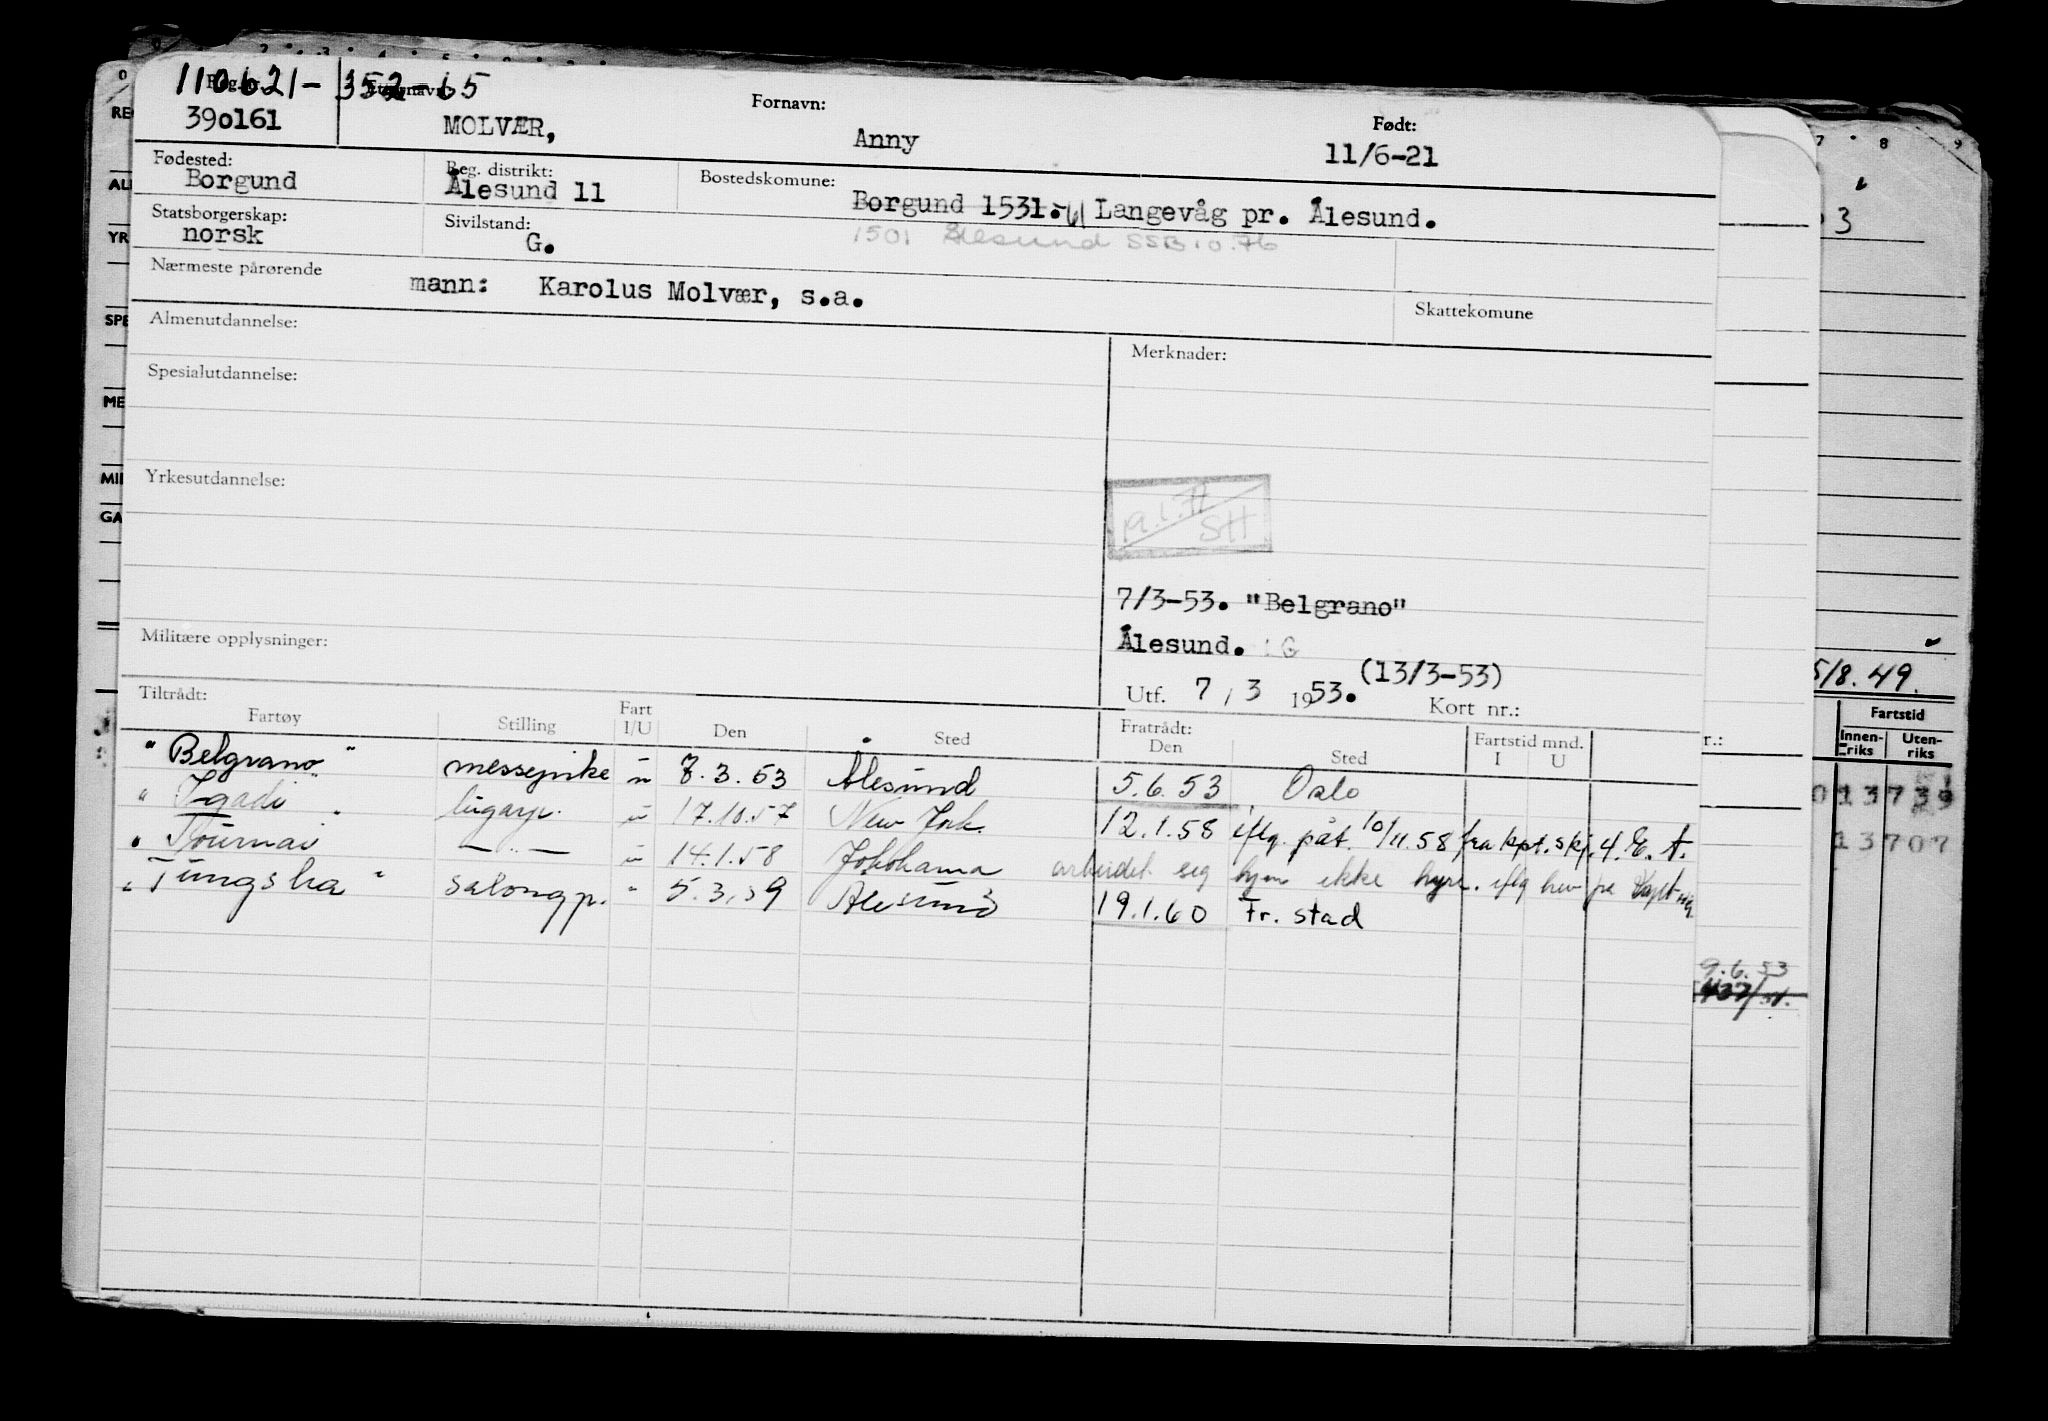 110621-352-65
Reg. nr. Etternavn: Fornavn: Født:
390161 MOLVÆR, Anny 11/6-21
Fødested: Reg. distrikt: Bostedskomune:
Borgund Ålesund 11 Borgund 1531. Langevåg pr. Ålesund.
Statsborgerskap: Sivilstand:
norsk G. 1501 Ålesund SSB 10.76
Nærmeste pårørende
mann: Karolus Molvær, s.a.
Skattekomune
Almenutdannelse:
Merknader:
Spesialutdannelse:
Yrkesutdannelse:
SH
7/3-53. "Belgrano"
Ålesund.
Militære opplysninger:
(13/3-53)
Utf. 7 / 3 1953. Kort nr.:
Tiltrådt: Fratrådt: Fartstid mnd.
Fartøy Stilling Fart I/U Den Sted Den Sted I U
"Belgrano" messepike u 7.3.53 Ålesund 5.6.53 Oslo
"Igadi" lugarp. u 17.10.57 New York. 12.1.58 iflg. påt. 10/11.58 fra kpt. skj. 4. E. A.
"Tournai — " — u 14.1.58 Yokohama arbeidet seg hjem ikke hyre. iflg brev fra
"Tungsha" salongp. " 5.3.59 Ålesund 19.1.60 Fr. stad
RE
AL
YR
SPE
ME
MI
GA
7 8 9
3
5/8.49.
Fartstid
Innenriks Utenriks
13707
r.:
9.6.53